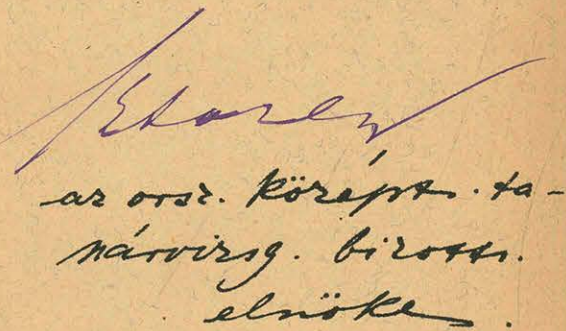 az orsz. középt. ta-
nárvizsg. bizotts.
elnöke.